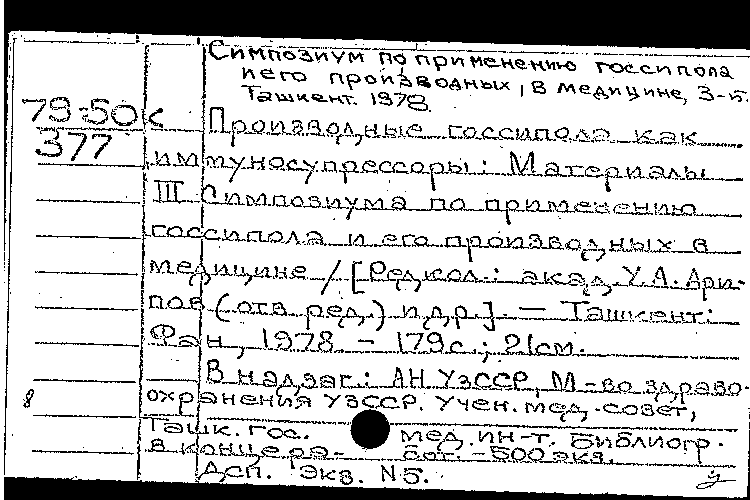 Симпозиум по применению госсипола
и его производных, в медицине, 3-й.
Ташкент. 1978.
79-50к
377
Производные госсипола как
иммуносупрессоры: Материалы
III Симпозиума по применению
госсипола и его производных в
медицине / [Редкол.: акад. У.А. Ари-
пов (отв. ред.) и др.]. — Ташкент:
Фан, 1978. - 179с.; 21см.
В надзаг.: АН УзССР, М-во здраво-
охранения УзССР. Учен. мед. совет,
8
Ташк. гос. мед. ин-т. Библиогр.
в конце ра- бот. - 500 экз.
ДСП. Экз. N5.